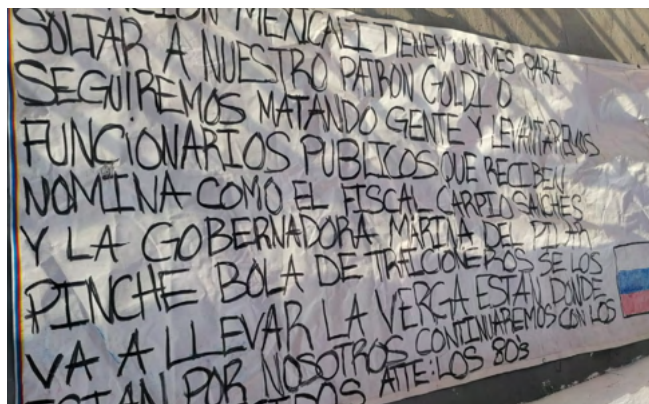 MEXICALI TIENEN UN MES PARA
SOLTAR A NUESTRO PATRON GOLDI O
SEGUIREMOS MATANDO GENTE Y LEVANTAREMOS
FUNCIONARIOS PUBLICOS QUE RECIBEN
NOMINA COMO EL FISCAL CARPIO SANCHES
Y LA GOBERNADORA MARINA DEL PILAR
PINCHE BOLA DE TRAICIONEROS SE LOS
VA A LLEVAR LA VERGA ESTAN DONDE
ESTAN POR NOSOTROS CONTINUAREMOS CON LOS
ATTE: LOS 80's